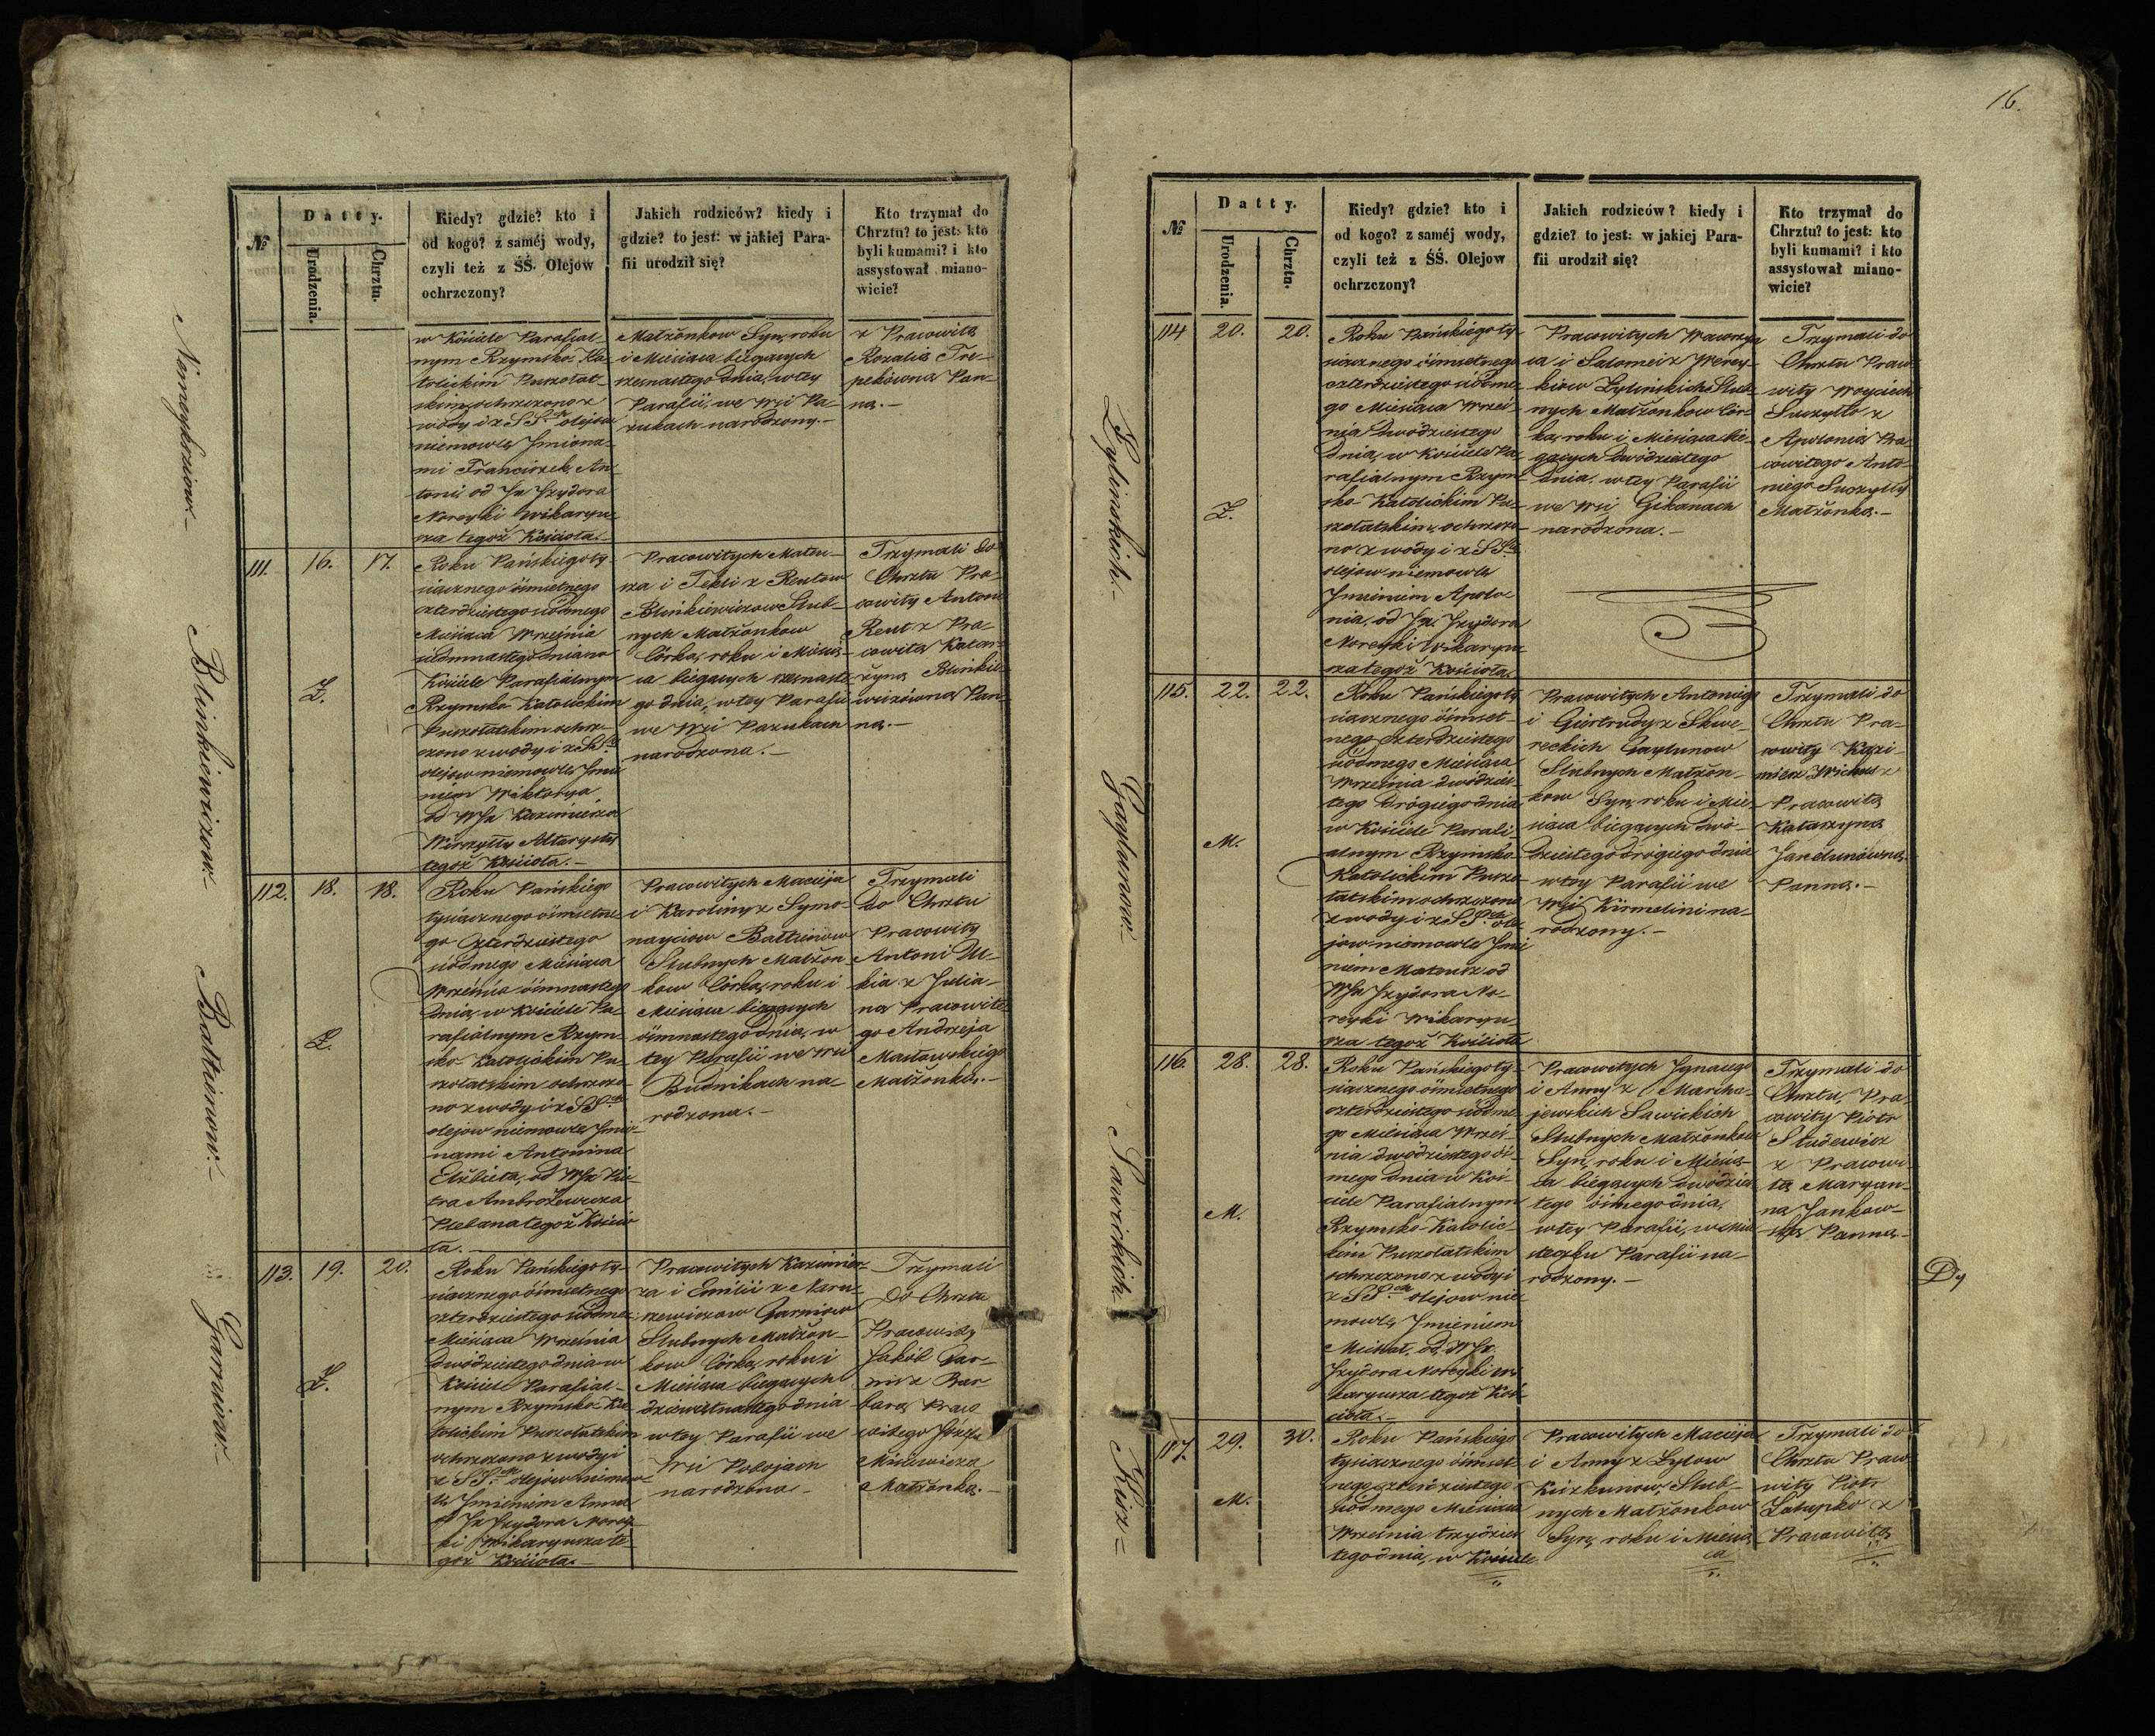 16.
№
Datty.
Urodzenia.
Chrztu.
Kiedy? gdzie? kto i
od kogo? z saméj wody,
czyli też z ŚŚ. Olejow
ochrzczony?
Jakich rodziców? kiedy i
gdzie? to jest: w jakiej Para-
fii urodził się?
Kto trzymał do
Chrztu? to jest: kto
byli kumami? i kto
assystował miano-
wicie?
w Kościele Parafial-
nym Rzymsko-Ka-
tolickim Puszołat-
skim ochrzczono z
wody i z SS. olejow
niemowle Imiona-
mi Franciszek, An-
toni od Jx Izydora
Noreyki Wikaryu-
sza tegoż Kościoła.-
Małżonkow Syn, roku
i Miesiąca bieżących
szesnastego dnia, w tey
Parafii, we wsi Pa-
zukach narodzony.-
z Pracowitą
Rozalią Tre-
pekówną Pan-
ną.-
Blinkiewiczow-
111.
16.
17.
Ż.
Roku Pańskiego ty-
siącznego ośmsetnego
czterdziestego siódmego
Miesiąca Września
siedmnastego dnia w
Kościele Parafialnym
Rzymsko Katolickim
Puszołatskim ochrz-
czono z wody i z SS.
olejow niemowle Imie-
niem Wiktorya
od WJx Kazimierza
Wirszyłły Altarysty
tegoż Kościoła.-
Pracowitych Mateu-
sza i Tekli z Reutow
Blinkiewiczow Ślub-
nych Małżonkow
Córka, roku i Miesią-
ca bieżących szesnaste-
go dnia, w tey Parafii
we Wsi Pazukach
narodzona.-
Trzymali do
Chrztu Pra-
cowity Antoni
Reut z Pra-
cowitą Katar-
zyną Blinkie-
wiczówną Pan-
ną.-
Baltuinow.-
112.
18.
18.
Ż.
Roku Pańskiego
tysiącznego ośmsetne-
go Czterdziestego
siódmego Miesiąca
Września ośmnastego
dnia, w Kościele Pa-
rafialnym Rzym-
sko-Katolickim Pu-
szołatskim ochrzczo-
no z wody i z SS.
olejow niemowle Imio-
nami Antonina
Elżbieta, od WJx Pio-
tra Ambrożewicza
Plebana tegoż Kościo-
ła.-
Pracowitych Macieja
i Karoliny z Symo-
nayciow Baltuinow
Ślubnych Małżon-
kow Córka, roku i
Miesiąca bieżących
ośmnastego dnia, w
tey Parafii we wsi
Budnikach na-
rodzona.-
Trzymali
do Chrztu
Pracowity
Antoni
z Julia-
ną Pracowite-
go Andrzeja
Masłowskiego
Małżonką.-
Garniow.-
113.
19.
20.
Ż.
Roku Pańskiego ty-
siącznego ośmsetnego
czterdziestego siódme-
Miesiąca Września
dwódziestego dnia w
Kościele Parafial-
nym Rzymsko-Ka-
tolickim Puszołatskim
ochrzczono z wody i
z SS. olejow niemow-
le Imieniem Anna
od Jx Izydora Norey-
ki Wikaryusza te-
goż Kościoła.-
Pracowitych Kazimier-
za i Emilii z Naru-
szewiczow Garniow
Ślubnych Małżon-
kow Córka, roku i
Miesiąca bieżących
dziewiętnastego dnia
w tey Parafii we
Wsi Pobojach
narodzona.-
Trzymali
do Chrztu
Pracowity
Jakób Gar-
nis z Bar-
barą Praco-
witego Józefa
Misiewicza
Małżonką.-
№
Datty.
Urodzenia.
Chrztu.
Kiedy? gdzie? kto i
od kogo? z saméj wody,
czyli też z ŚŚ. Olejow
ochrzczony?
Jakich rodziców? kiedy i
gdzie? to jest: w jakiej Para-
fii urodził się?
Kto trzymał do
Chrztu? to jest: kto
byli kumami? i kto
assystował miano-
wicie?
Żylinskich.-
114
20.
20.
Ż.
Roku Pańskiego ty-
siącznego ośmsetnego
czterdziestego siódme-
go Miesiąca Wrześ-
nia dwódziestego
dnia, w Kościele Pa-
rafialnym Rzym-
sko-Katolickim Pu-
szołatskim, ochrzczo-
no z wody i z SS.
olejow niemowle
Imieniem Apolo-
nia, od Jx. Izydora
Noreyki Wikaryu-
sza tegoż Kościoła.
Pracowitych Wawrzyń-
ca i Salomei z Werey-
kiow Żylińskich Ślub-
nych Małżonkow Cór-
ka, roku i Miesiąca bie-
żących dwódziestego
dnia, w tey Parafii
we Wsi Gikanach
narodzona.-
Trzymali do
Chrztu Praco-
wity Woyciech
Suszyłło z
Apolonią Pra-
cowitego Anto-
niego Suszyłły
Małżonką.-
Gaylunow.-
115.
22.
22.
M.
Roku Pańskiego ty-
siącznego ośmset-
nego czterdziestego
siódmego Miesiąca
Września dwódzies-
tego drógiego dnia
w Kościele Parafi-
alnym Rzymsko
Katolickim Puszo-
łatskim ochrzczono
z wody i z SS. ole-
jow niemowle Imie-
niem Mateusz od
WJx Izydora No-
reyki Wikaryu-
sza tegoż Kościoła
Pracowitych Antoniego
i Giertrudy z Skwe-
reckich Gaylunow
Ślubnych Małżon-
kow Syn, roku i Mie-
siąca bieżących dwó-
dziestego drógiego dnia
w tey Parafii we
Wsi Kirmelini na-
rodzony.-
Trzymali do
Chrztu Pra-
cowity Kazi-
mierz z
Pracowitą
Katarzyną
Panną.-
Sawickich.-
116.
28.
28.
M.
Roku Pańskiego ty-
siącznego ośmsetnego
czterdziestego siódme-
go Miesiąca Wrześ-
nia dwódziestego óś-
mego dnia w Koś-
ciele Parafialnym
Rzymsko-Katolic-
kim Puszołatskim
ochrzczono z wody i
z SS. olejow nie-
mowle, Imieniem
Michał, od WJx.
Izydora Noreyki Wi-
karyusza tegoż Koś-
cioła.-
Pracowitych Ignacego
i Anny z Marcha-
jewskich Sawickich
Ślubnych Małżonkow
Syn, roku i Miesią-
ca bieżących dwódzies-
tego ósmego dnia,
w tey Parafii, w Mia-
steczku Parafii na-
rodzony.-
Trzymali do
Chrztu, Pra-
cowity Piotr
z Pracowi-
tą Maryan-
ną Jankow-
ską Panną.-
Kisz=
117.
29.
30.
M.
Roku Pańskiego
tysiącznego ośmset-
nego czterdziestego
siódmego Miesiąca
Września trzydzies-
tego dnia, w Kościele
Pracowitych Macieja
i Anny z Żylow
Kiszkunow, Ślub-
nych Małżonkow
Syn, roku i Miesią-
ca
Trzymali do
Chrztu Praco-
wity Piotr
Łatupko z
Pracowitą